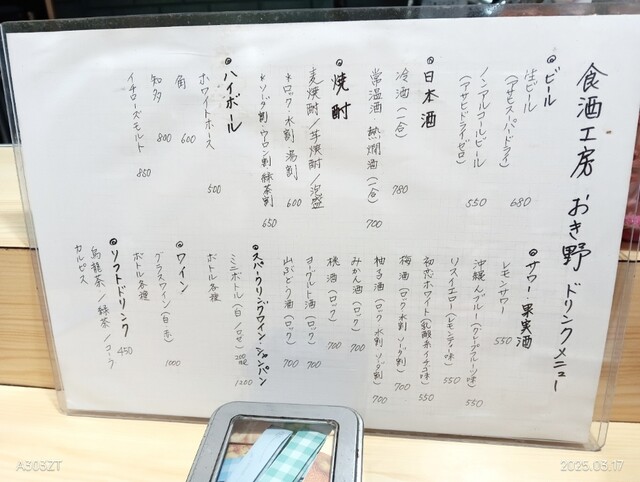 食酒工房 おき野 ドリンクメニュー
◎ビール
生ビール
(アサヒスーパードライ) 680
ノンアルコールビール
(アサヒドライゼロ) 550
◎日本酒
冷酒(一合) 780
常温酒・熱燗酒(一合) 700
◎焼酎
麦焼酎/芋焼酎/泡盛
*ロック 水割 湯割 600
*ソーダ割 ウーロン割 緑茶割 650
◎ハイボール
ホワイトホース 500
角 600
知多 800
イチローズモルト 850
◎サワー・果実酒
レモンサワー 550
沖縄ブルー(グレープフルーツ味) 550
リスイエロー(レモンティ味) 550
初恋ホワイト(乳酸系イチゴ味) 550
梅酒(ロック 水割 ソーダ割) 700
柚子酒(ロック 水割 ソーダ割) 700
みかん酒(ロック) 700
桃酒(ロック) 700
ヨーグルト酒(ロック) 700
山ぶどう酒(ロック) 700
◎スパークリングワイン シャンパン
ミニボトル(白/ロゼ) 200ml 1200
ボトル各種
◎ワイン
グラスワイン(白 赤) 1000
ボトル各種
◎ソフトドリンク 450
烏龍茶/緑茶/コーラ
カルピス
A303ZT
2025.03.17